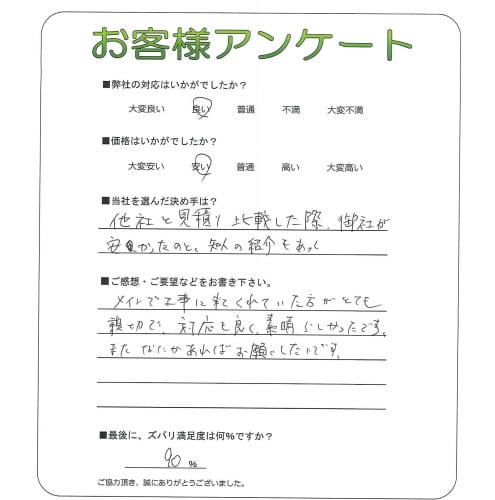 お客様アンケート
■弊社の対応はいかがでしたか？
大変良い 良い 普通 不満 大変不満
■価格はいかがでしたか？
大変安い 安い 普通 高い 大変高い
■当社を選んだ決め手は？
他社と見積り比較した際、御社が
安かったのと、知人の紹介もあっく
■ご感想・ご要望などをお書き下さい。
メインで工事に来てくれていた方がとても
親切で、対応も良く、素晴らしかったです。
またなにかあればお願いしたいです。
■最後に、ズバリ満足度は何％ですか？
90 %
ご協力頂き、誠にありがとうございました。